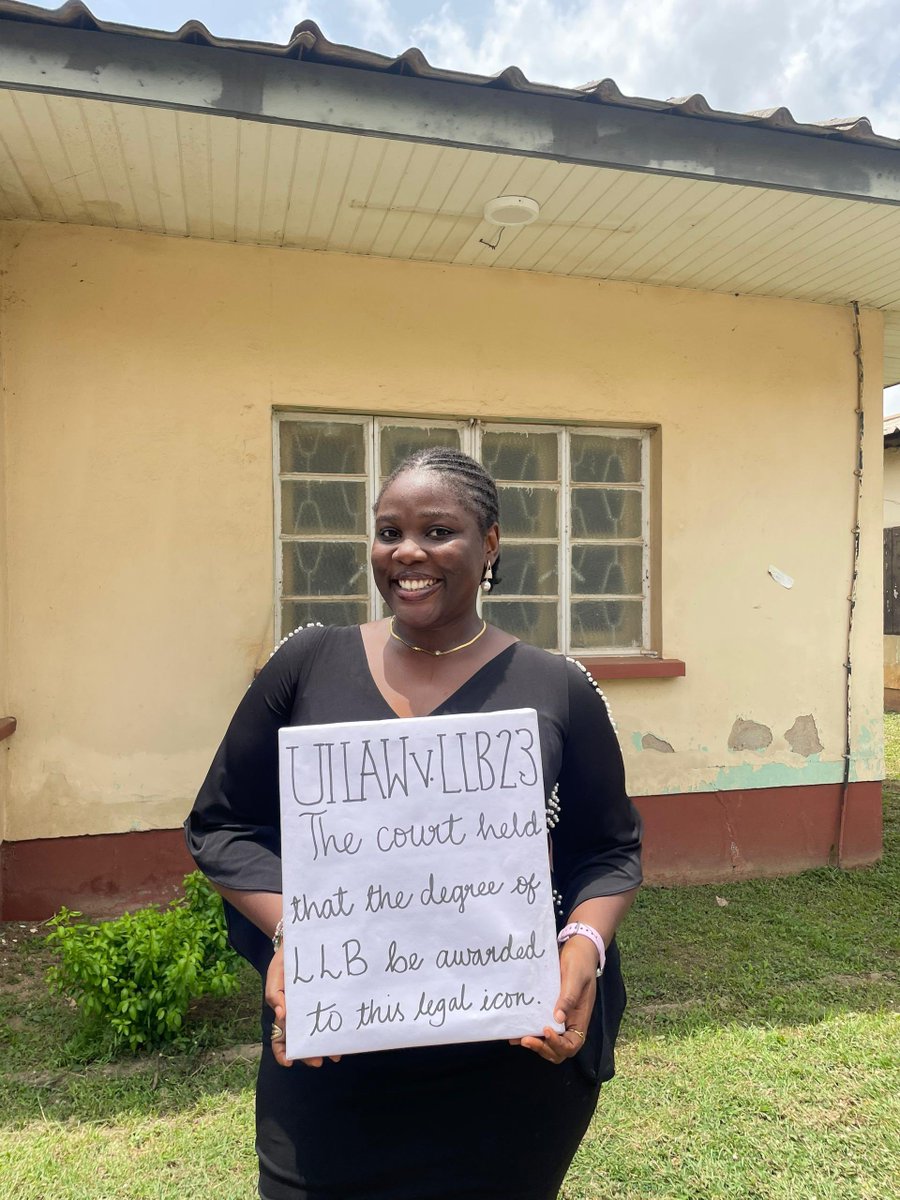 UILAW v. LLB23
The court held
that the degree of
LLB be awarded
to this legal icon.